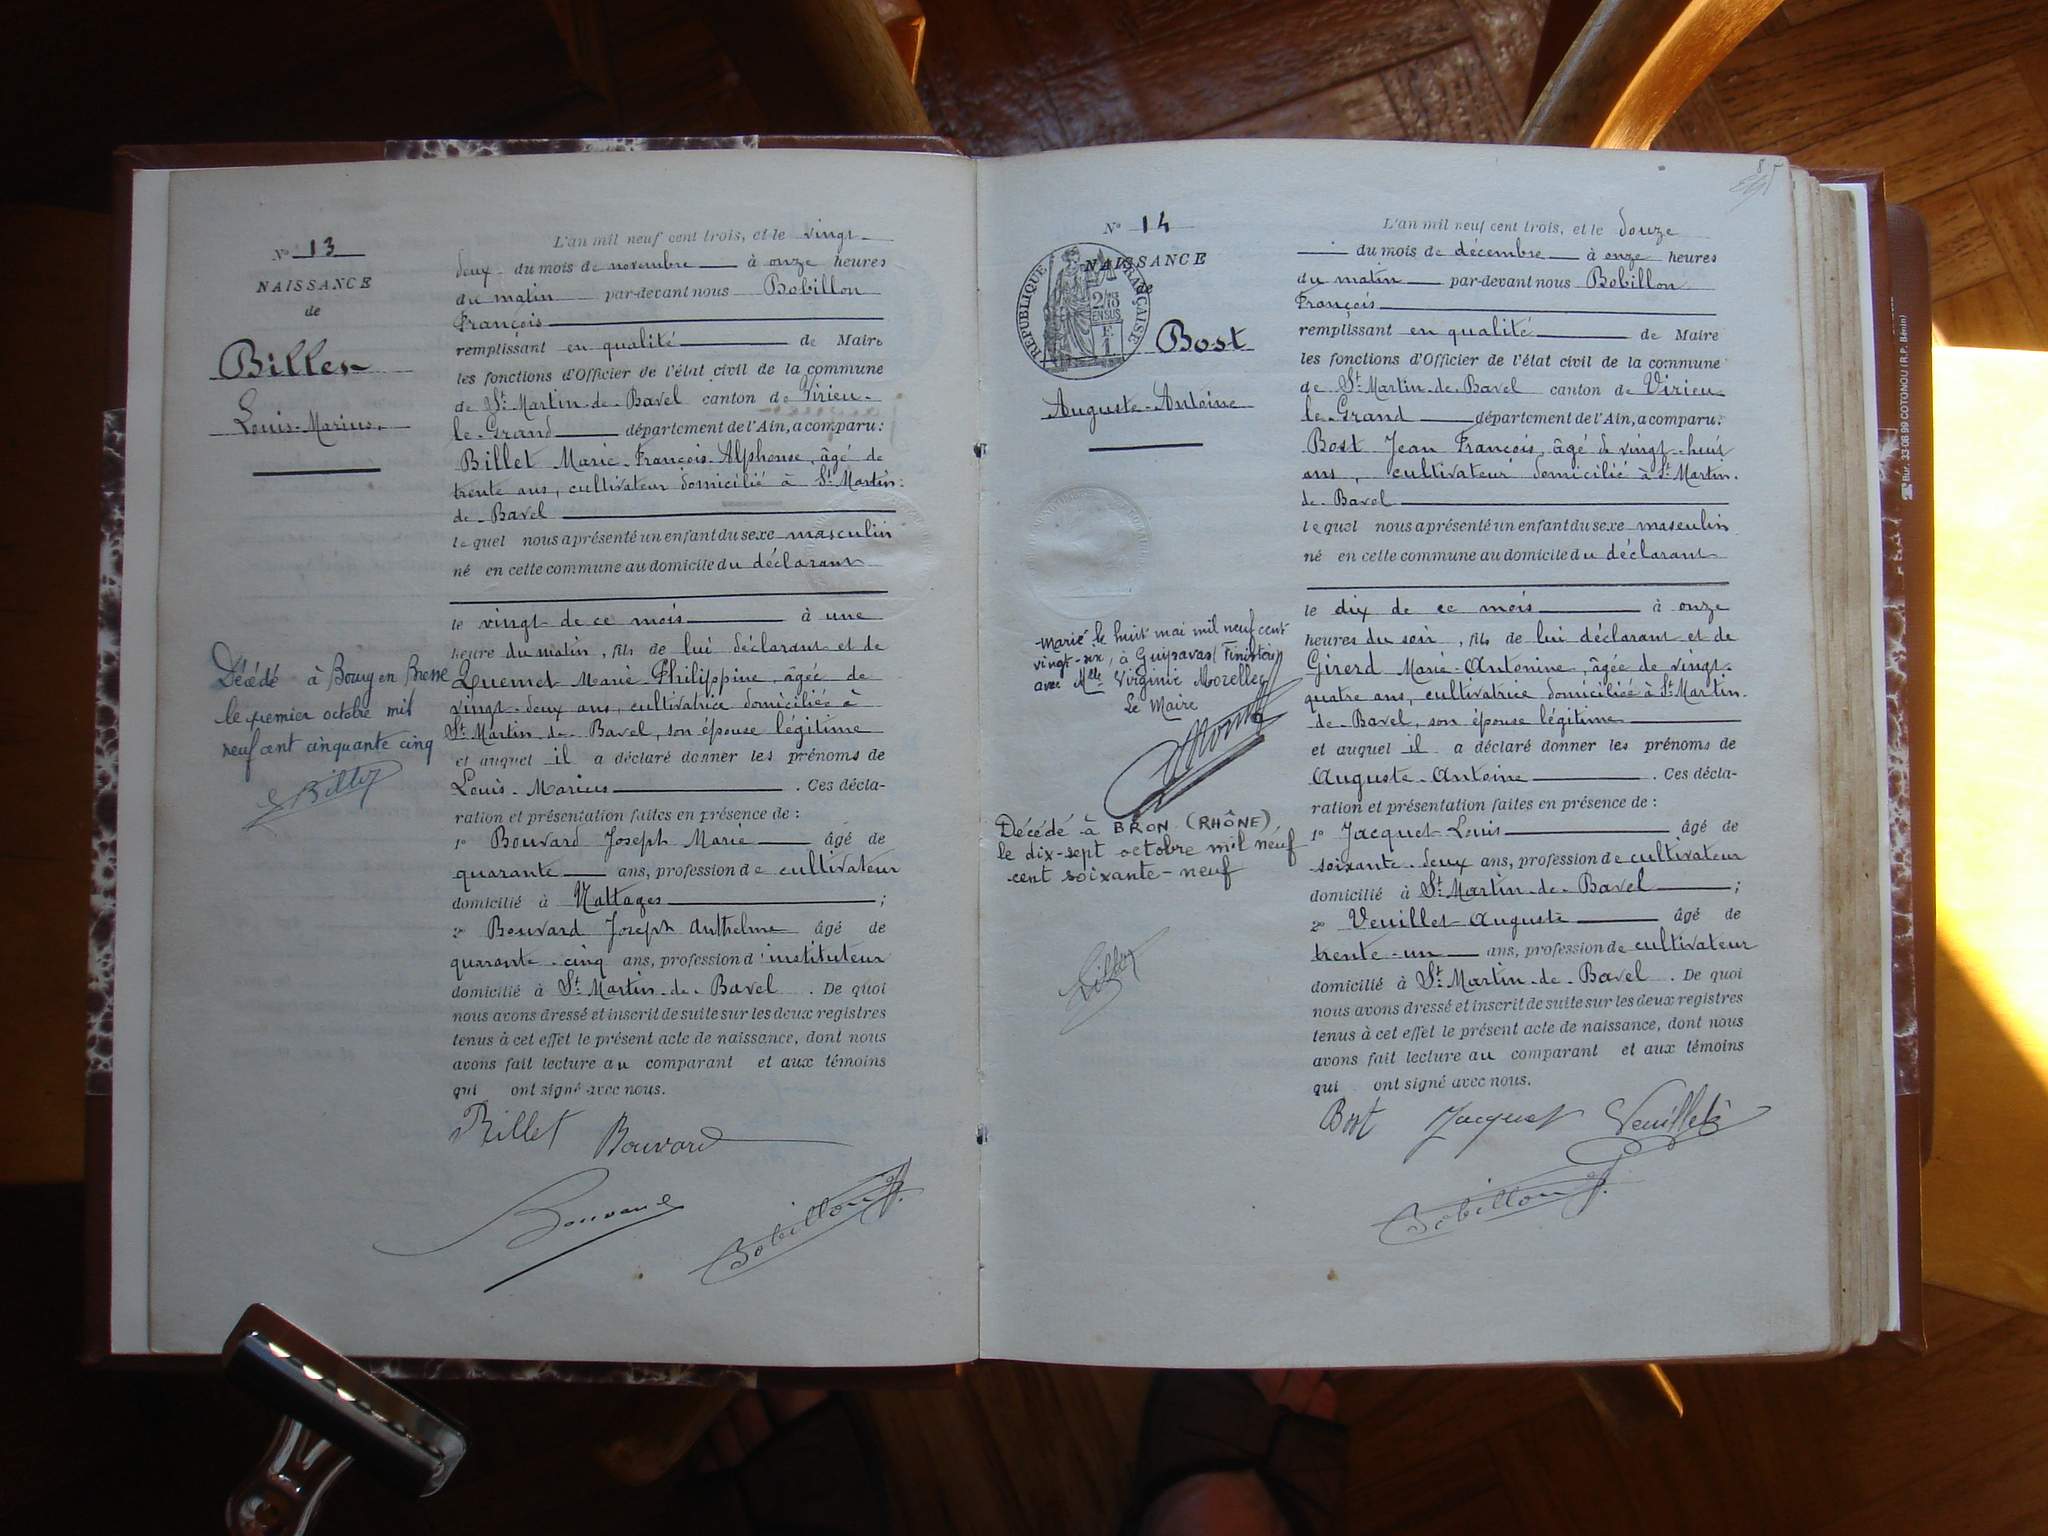 N° 13
NAISSANCE
de
Billet
Louis-Marius.
Décédé à Bourg en Bresse
le premier octobre mil
neuf cent cinquante cinq
L'an mil neuf cent trois, et le vingt
deux du mois de novembre à onze heures
du matin par-devant nous Bobillon
François
remplissant en qualité de Maire
les fonctions d'Officier de l'état civil de la commune
de St Martin-de-Bavel canton de Virieu-
le-Grand département de l'Ain, a comparu:
Billet Marie-François-Alphonse, âgé de
trente ans, cultivateur domicilié à St Martin-
de-Bavel
lequel nous a présenté un enfant du sexe masculin
né en cette commune au domicile du déclarant
le vingt de ce mois à une
heure du matin, fils de lui déclarant et de
Quemet Marie Philippine, âgée de
vingt-deux ans, cultivatrice domiciliée à
St Martin-de-Bavel, son épouse légitime
et auquel il a déclaré donner les prénoms de
Louis-Marius. Ces décla-
ration et présentation faites en présence de:
1° Bouvard Joseph Marie âgé de
quarante ans, profession de cultivateur
domicilié à Nattages;
2° Bouvard Joseph Anthelme âgé de
quarante-cinq ans, profession d'instituteur
domicilié à St Martin-de-Bavel. De quoi
nous avons dressé et inscrit de suite sur les deux registres
tenus à cet effet le présent acte de naissance, dont nous
avons fait lecture au comparant et aux témoins
qui ont signé avec nous.
Billet Bouvard
Bouvard Bobillon
85
N° 14
NAISSANCE
de
RÉPUBLIQUE FRANÇAISE
2/10
EN SUS
Bost
Auguste-Antoine
Marié le huit mai mil neuf cent
vingt-six, à Guipavas (Finistère)
avec Mlle Virginie Morellec
Le Maire
Décédé à BRON (RHÔNE)
le dix-sept octobre mil neuf
cent soixante-neuf
L'an mil neuf cent trois, et le douze
du mois de décembre à onze heures
du matin par-devant nous Bobillon
François
remplissant en qualité de Maire
les fonctions d'Officier de l'état civil de la commune
de St Martin-de-Bavel canton de Virieu
le-Grand département de l'Ain, a comparu:
Bost Jean François, âgé de vingt-huit
ans, cultivateur domicilié à St Martin-
de-Bavel
lequel nous a présenté un enfant du sexe masculin
né en cette commune au domicile du déclarant
le dix de ce mois à onze
heures du soir, fils de lui déclarant et de
Girerd Marie-Antonine, âgée de vingt-
quatre ans, cultivatrice domiciliée à St Martin-
de-Bavel, son épouse légitime
et auquel il a déclaré donner les prénoms de
Auguste-Antoine. Ces décla-
ration et présentation faites en présence de:
1° Jacquet Louis âgé de
soixante-deux ans, profession de cultivateur
domicilié à St Martin-de-Bavel;
2° Veuillet Auguste âgé de
trente-un ans, profession de cultivateur
domicilié à St Martin-de-Bavel. De quoi
nous avons dressé et inscrit de suite sur les deux registres
tenus à cet effet le présent acte de naissance, dont nous
avons fait lecture au comparant et aux témoins
qui ont signé avec nous.
Bost Jacquet Veuillet
Bobillon
Bur. 33 08 99 COTONOU (R.P. Bénin)